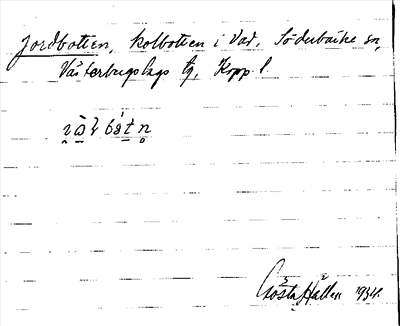 Jordbotten, kolbotten i Vad, Söderbärke sn,
Västerbergslags tg, Kopp. l.
Gösta Hallen 1934.